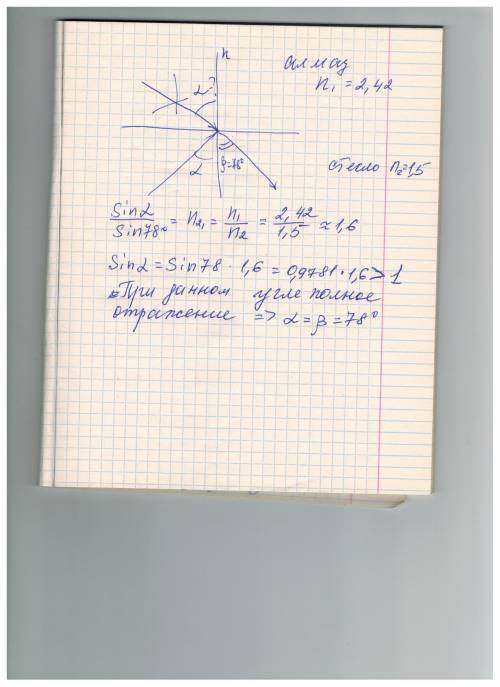 n
алмаз
n₁ = 2,42
α - ?
α
β=78°
стекло n₂=1,5
Sinα/Sin78° = n₂₁ = n₁/n₂ = 2,42/1,5 ≈ 1,6
Sinα = Sin78 · 1,6 = 0,9781 · 1,6 > 1
При данном угле полное
отражение => α = β = 78°